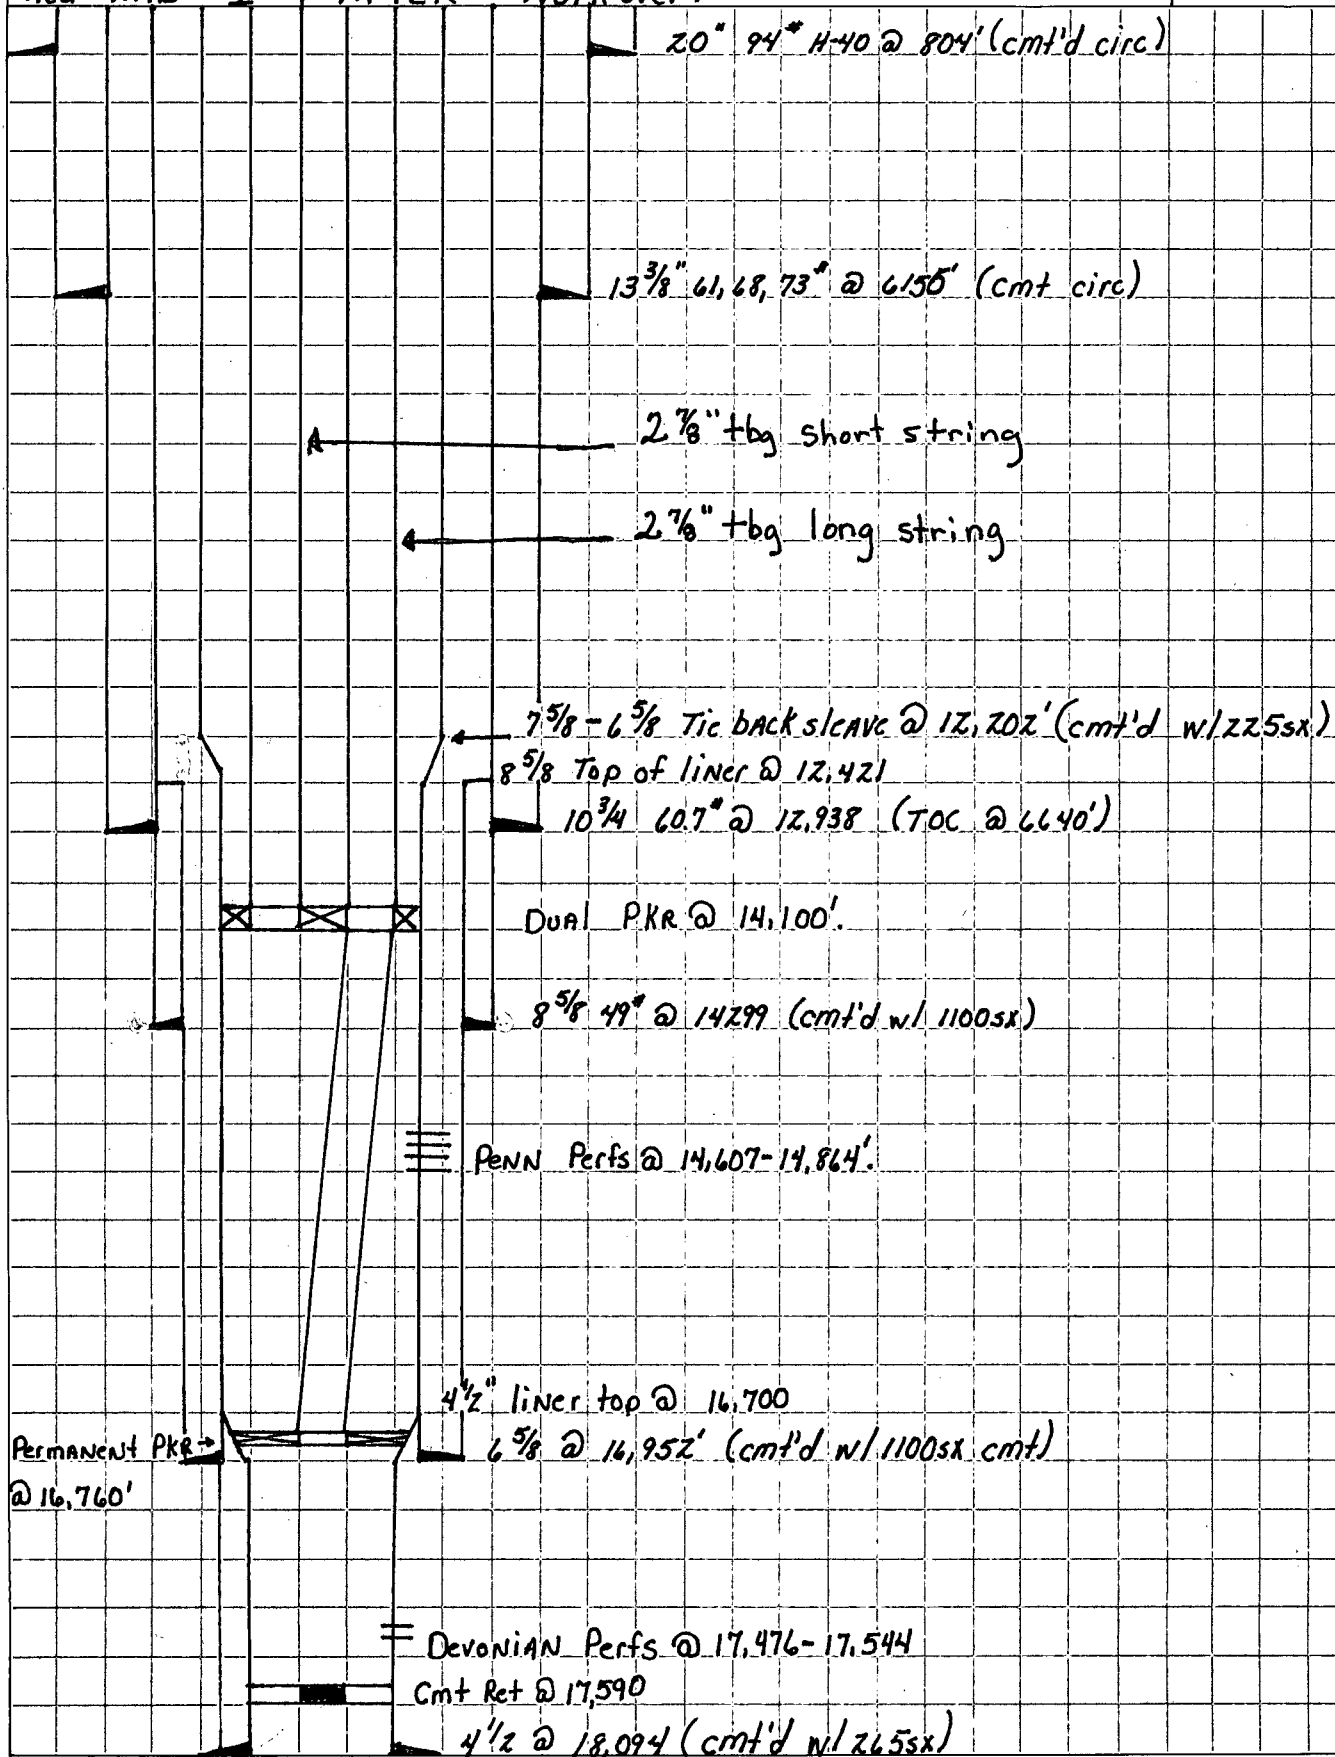 AFTER
20" 94# H-40 @ 804' (cmt'd circ)
13 3/8" 61, 68, 73# @ 6150' (cmt circ)
2 7/8" tbg short string
2 7/8" tbg long string
7 5/8 - 6 5/8 Tie bACK sleAVE @ 12,202' (cmt'd w/225sx)
8 5/8 Top of liNer @ 12,421
10 3/4 60.7# @ 12,938 (TOC @ 6640')
DUAl PKR @ 14,100'.
8 5/8 49# @ 14299 (cmt'd w/ 1100sx)
PENN Perfs @ 14,607-14,864'.
4 1/2" liNer top @ 16,700
PERMANENT PKR
6 5/8 @ 16,952' (cmt'd w/ 1100sx cmt)
@ 16,760'
DEVONIAN Perfs @ 17,476-17,544
Cmt Ret @ 17,590
4 1/2 @ 18,094 (cmt'd w/ 265sx)